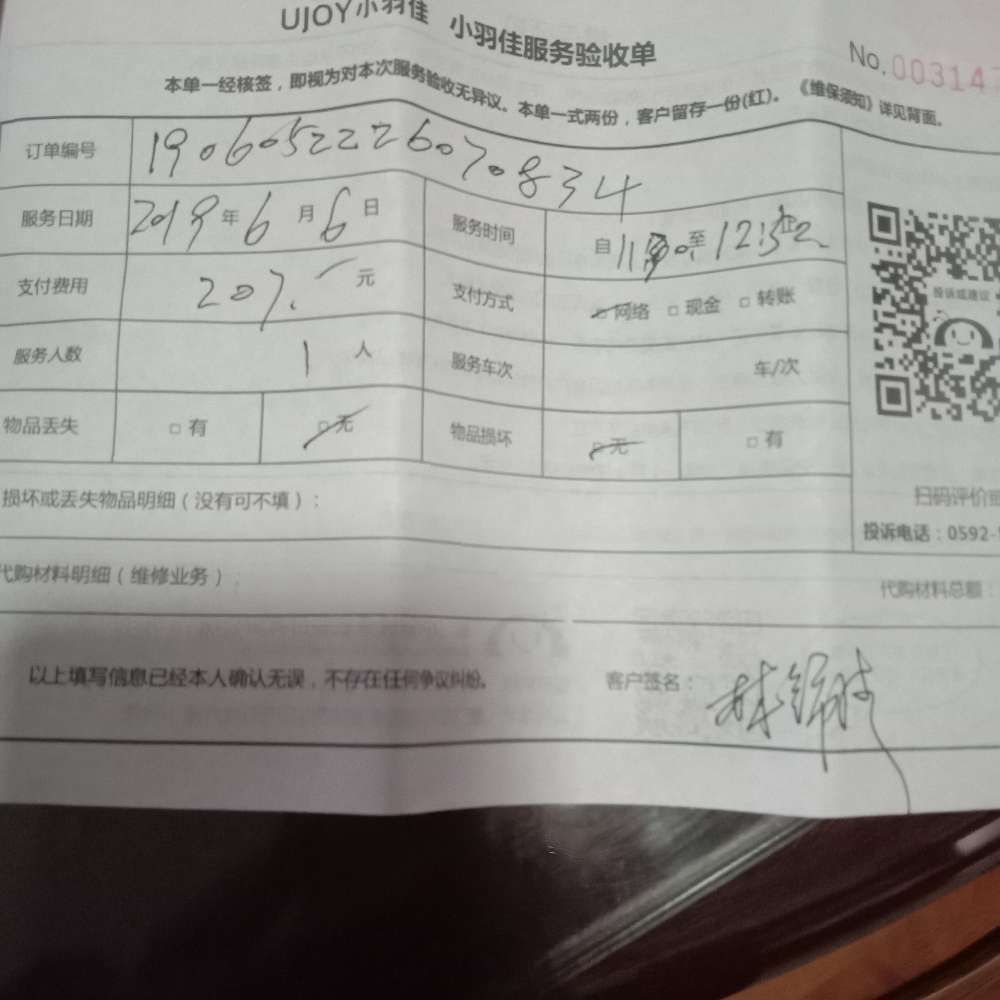 UJOY小羽佳 小羽佳服务验收单
No.00314
本单一经核签，即视为对本次服务验收无异议。本单一式两份，客户留存一份(红)。《维保须知》详见背面。
订单编号 190605222607083 4
服务日期 2019年6月6日 服务时间 自 至12:52
支付费用 207.元 支付方式 网络 □现金 □转账
服务人数 1人 服务车次 车/次
物品丢失 □有 □无 物品损坏 □无 □有
投诉或建议
损坏或丢失物品明细（没有可不填）：
扫码评价
投诉电话：0592-
代购材料明细（维修业务）：
代购材料总额：
以上填写信息已经本人确认无误，不存在任何争议纠纷。 客户签名：林